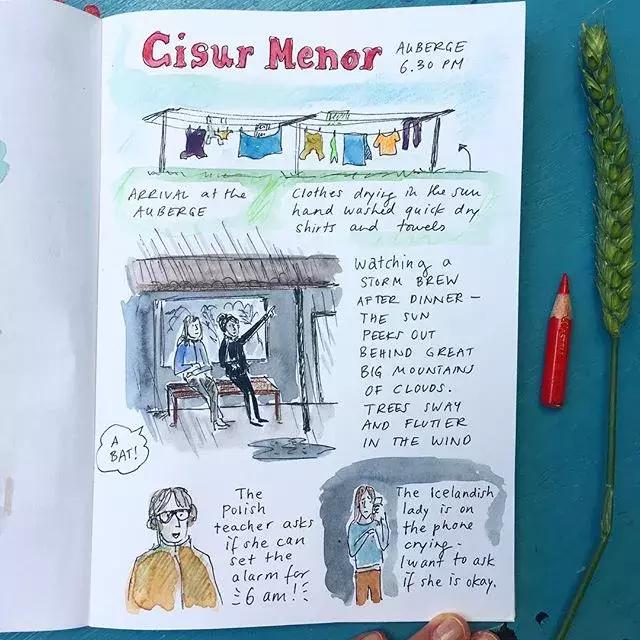 Cisur Menor
AUBERGE
6.30 PM
ARRIVAL at the
AUBERGE
Clothes drying in the sun
hand washed quick dry
shirts and towels
Watching a
STORM BREW
AFTER DINNER –
THE SUN
PEEKS OUT
BEHIND GREAT
BIG MOUNTAINS
OF CLOUDS.
TREES SWAY
AND FLUTTER
IN THE WIND
A
BAT!
The
Polish
teacher asks
if she can
set the
alarm for
6 am!
The Icelandish
lady is on
the phone
crying –
I want to ask
if she is okay.